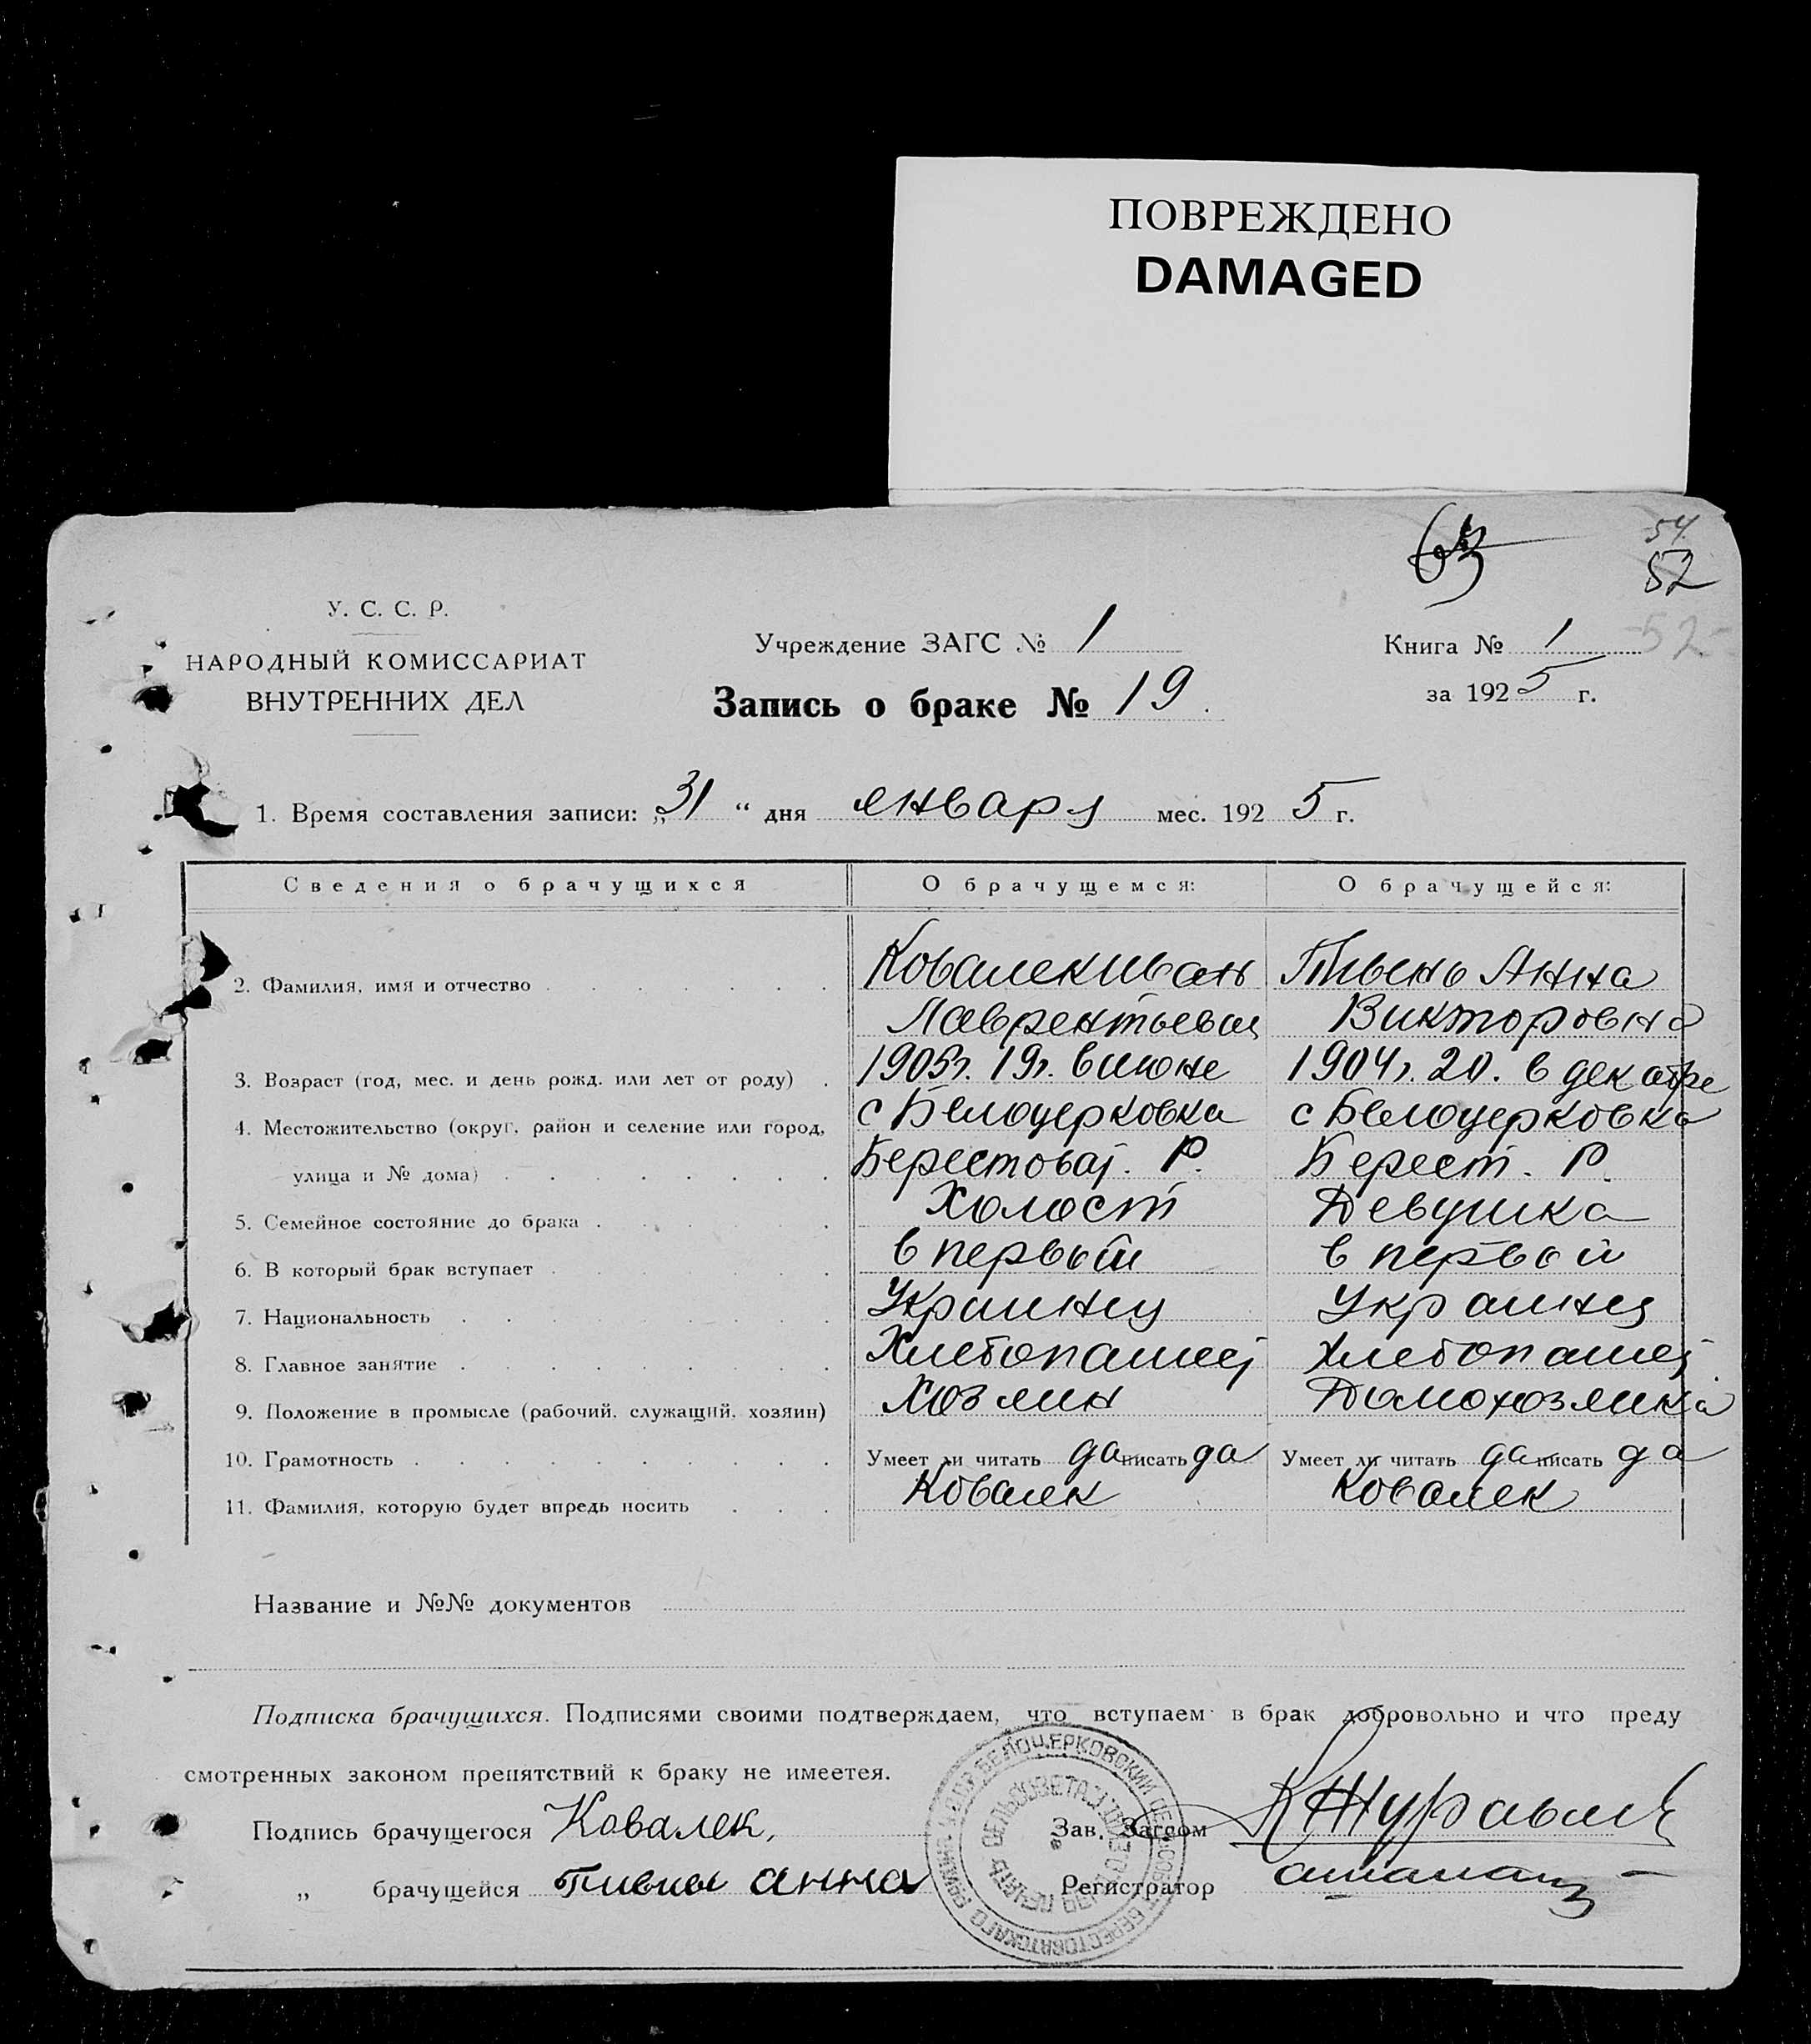 ПОВРЕЖДЕНО
DAMAGED
54.
52
52
У. С. С. Р.
НАРОДНЫЙ КОМИССАРИАТ
ВНУТРЕННИХ ДЕЛ
Учреждение ЗАГС № 1
Запись о браке № 19.
Книга № 1
за 1925 г.
1. Время составления записи: „31“ дня января мес. 1925 г.
Сведения о брачущихся О брачущемся: О брачущейся:
2. Фамилия, имя и отчество Ковалек Иван Пивень Анна
Лаврентьевич Викторовна
3. Возраст (год, мес. и день рожд. или лет от роду) 1905г. 19г. в июне 1904г. 20. в декабре
4. Местожительство (округ, район и селение или город, с Белоцерковка с Белоцерковка
улица и № дома) Берестоваj. Р. Берест. Р.
5. Семейное состояние до брака Холост Девушка
6. В который брак вступает в первый в первый
7. Национальность Украинц Украинц
8. Главное занятие Хлебопашец Хлебопашец
9. Положение в промысле (рабочий, служащий, хозяин) Хозяин Домохозяика
10. Грамотность Умеет ли читать да писать да Умеет ли читать да писать да
11. Фамилия, которую будет впредь носить Ковалек Ковалек
Название и №№ документов
Подписка брачущихся. Подписями своими подтверждаем, что вступаем в брак добровольно и что преду
смотренных законом препятствий к браку не имеетея.
Подпись брачущегося Ковалек. Зав. Загсом
„ брачущейся Анна Регистратор
БЕЛОЦЕРКОВСКИЙ